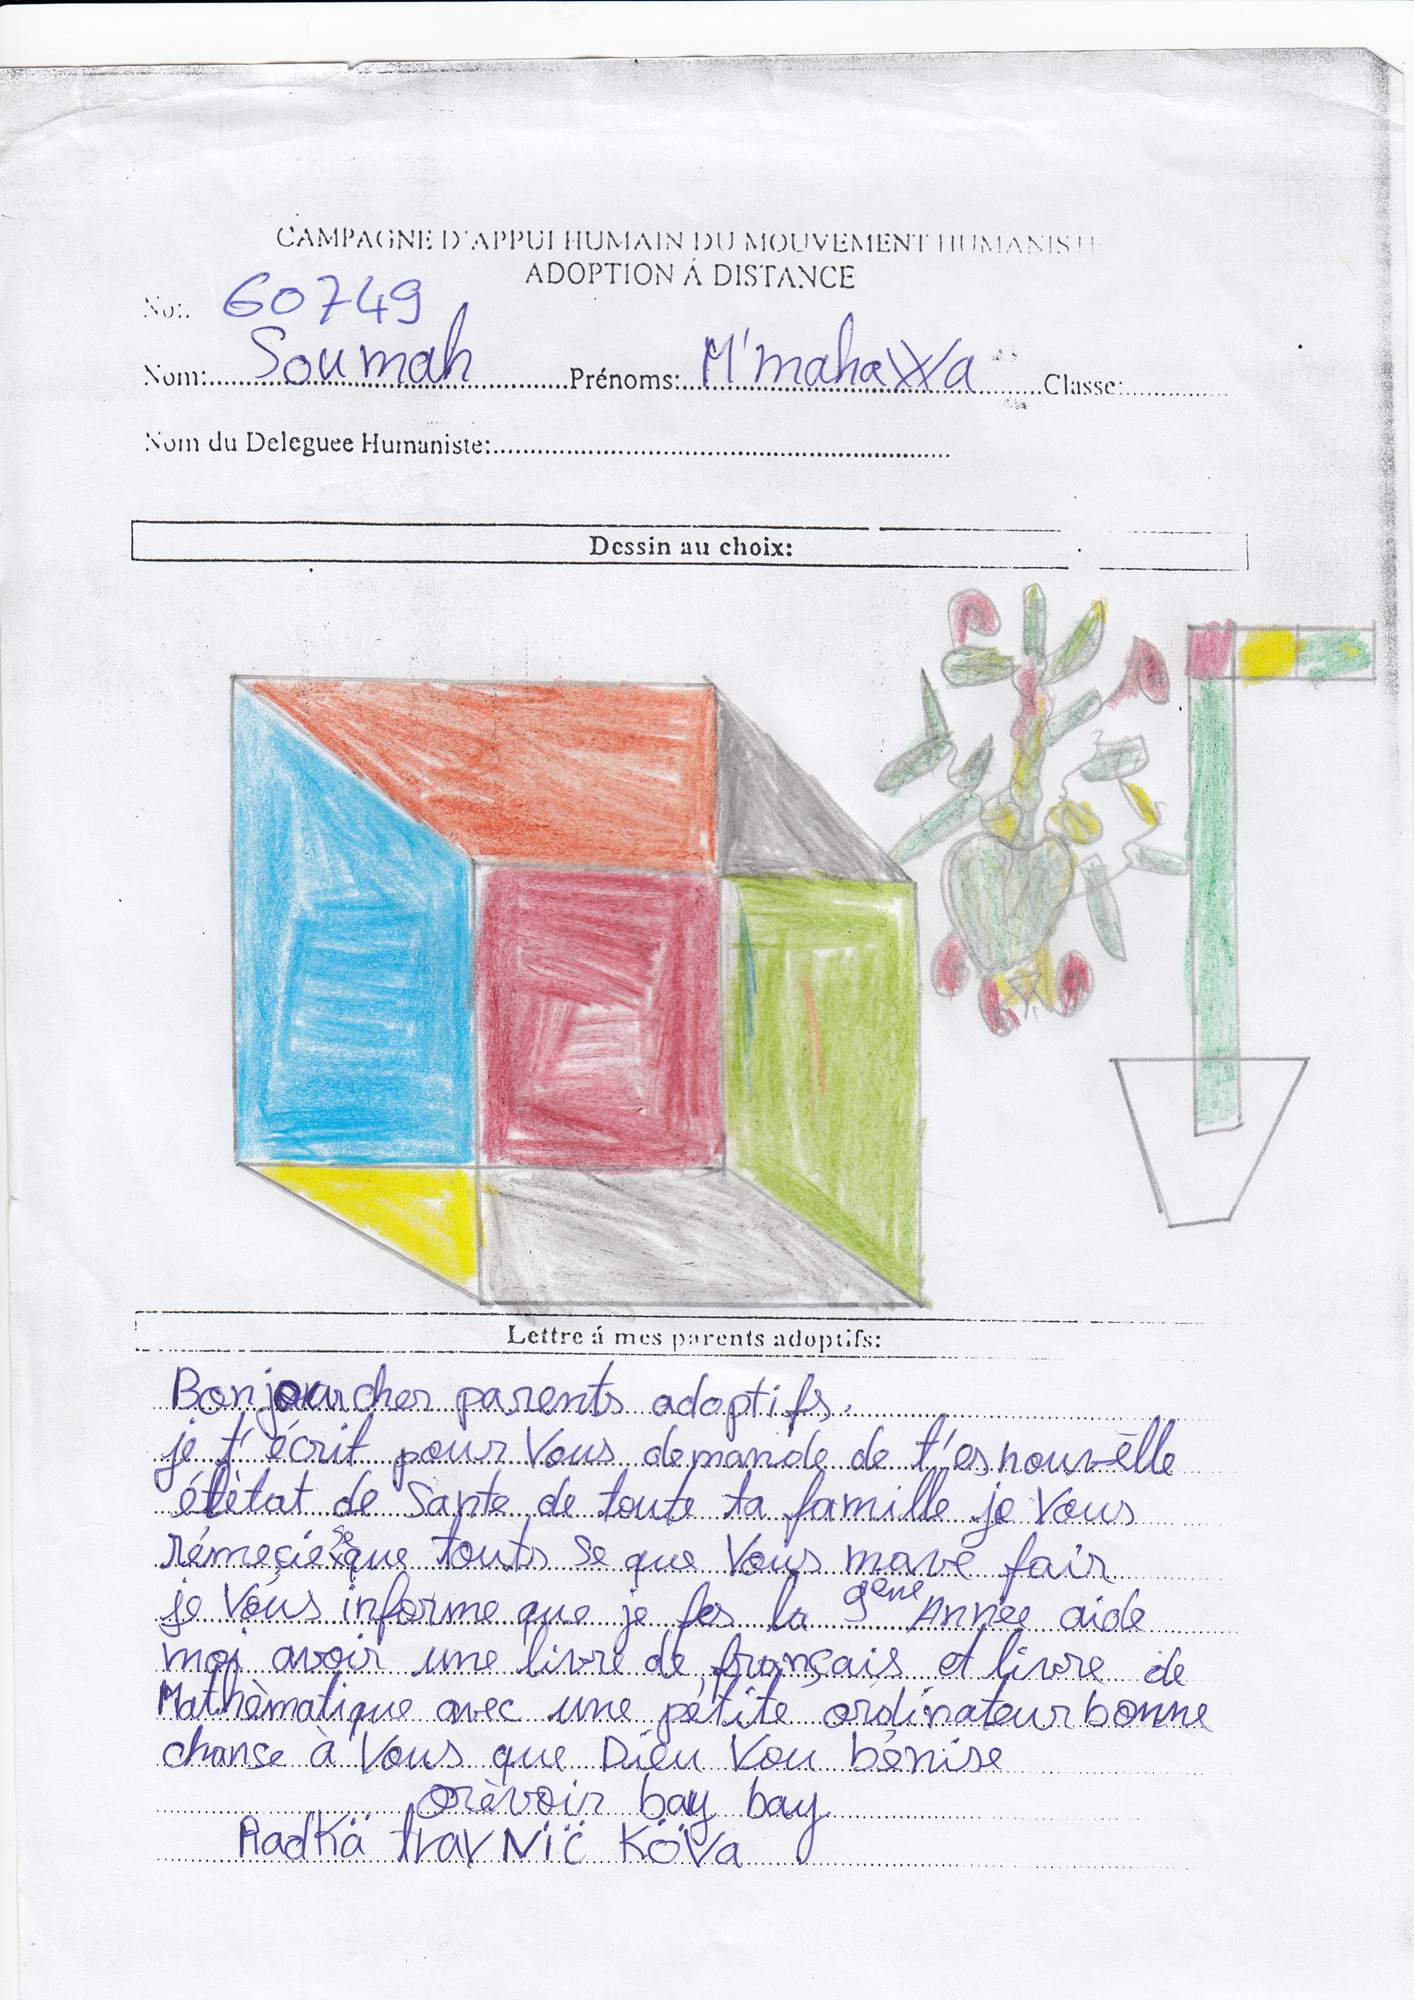 CAMPAGNE D'APPUI HUMAIN DU MOUVEMENT HUMANISTE
ADOPTION Á DISTANCE
No:. 60749
Nom: Soumah Prénoms: M'mahaWa Classe:
Nom du Deleguee Humaniste:
Dessin au choix:
Lettre á mes parents adoptifs:
Bonjour cher parents adoptifs.
je t'écrit pour Vous demande de t'es nouvèlle
étètat de Sante de toute ta famille je Vous
rémeçie se que touts se que Vous mavé fair
je Vous informe que je fes la 9ème Année aide
moi avoir une livre de français et livre de
Mathèmatique avec une pétité ordinateur bonne
chance à Vous que Dieu Vou bénise
orèvoir bay bay.
Radkä travNïc Köva